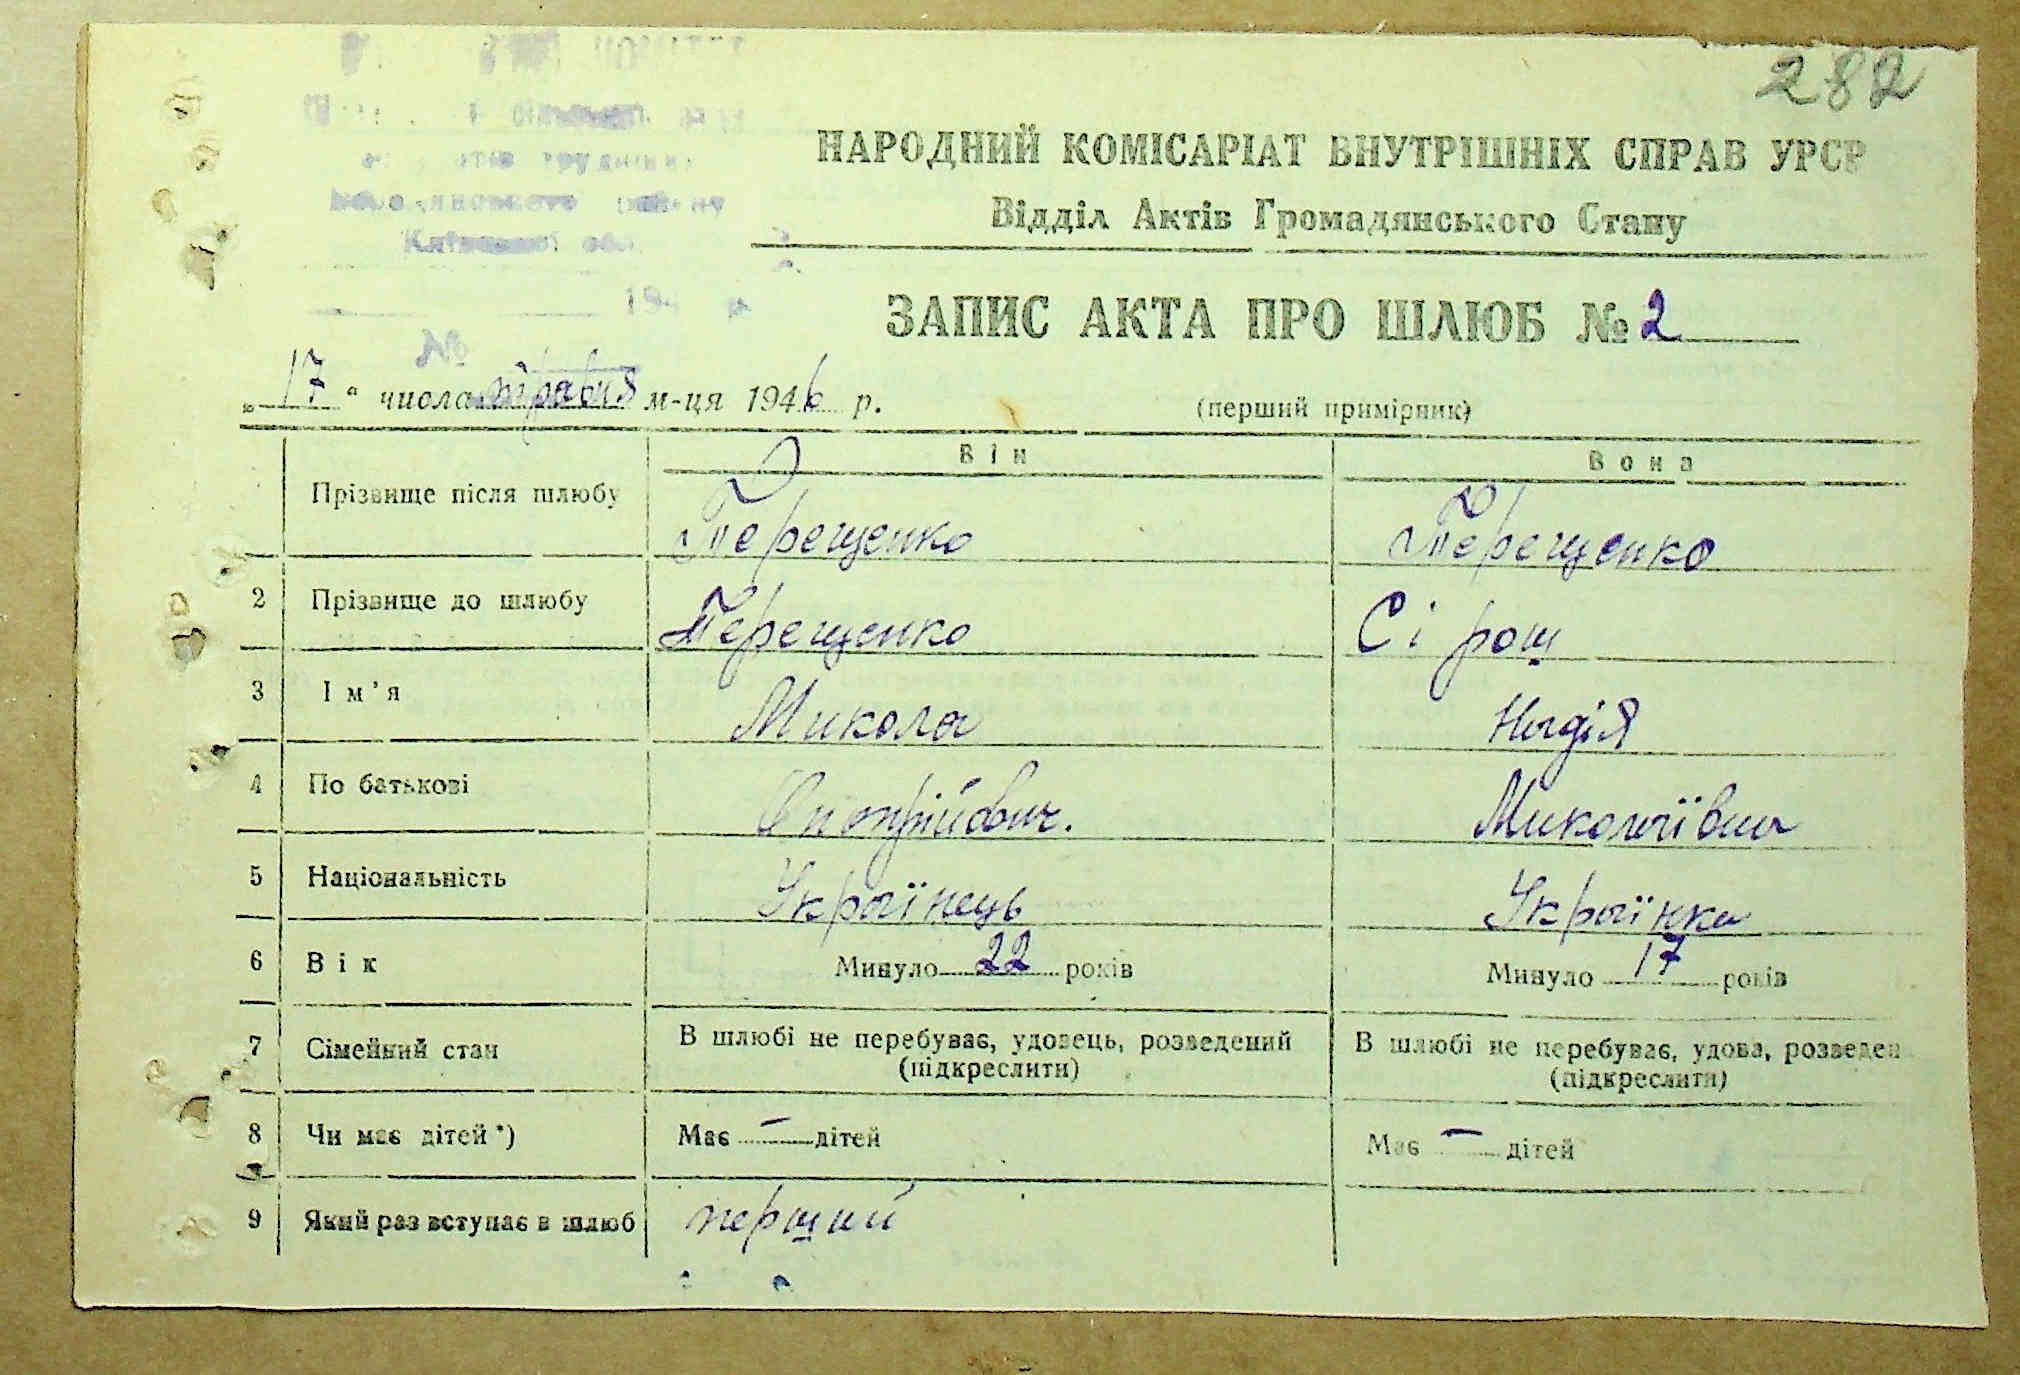 282
НАРОДНИЙ КОМІСАРІАТ ВНУТРІШНІХ СПРАВ УРСР
Відділ Актів Громадянського Стану
Київської обл.
194
№
ЗАПИС АКТА ПРО ШЛЮБ № 2
„17“ числа травня м-ця 1946 р.
(перший примірник)
Він Вона
Прізвище після шлюбу Терещенко Терещенко
2 Прізвище до шлюбу Терещенко Сірош
3 Ім'я Микола Надія
4 По батькові Онопрійович. Миколаївна
5 Національність Українець Українка
6 Вік Минуло 22 років Минуло 17 років
7 Сімейний стан В шлюбі не перебуває, удовець, розведений В шлюбі не перебуває, удова, розведен
(підкреслити) (підкреслити)
8 Чи має дітей *) Має — дітей Має — дітей
9 Який раз вступає в шлюб перший